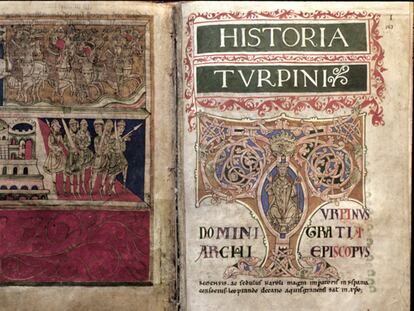 HISTORIA
TVRPINI
TVRPINVS
DOMINI GRATIA
ARCHI EPISCOPUS
ac sedulus Karoli magni imperatoris in yspania
leoprando decano